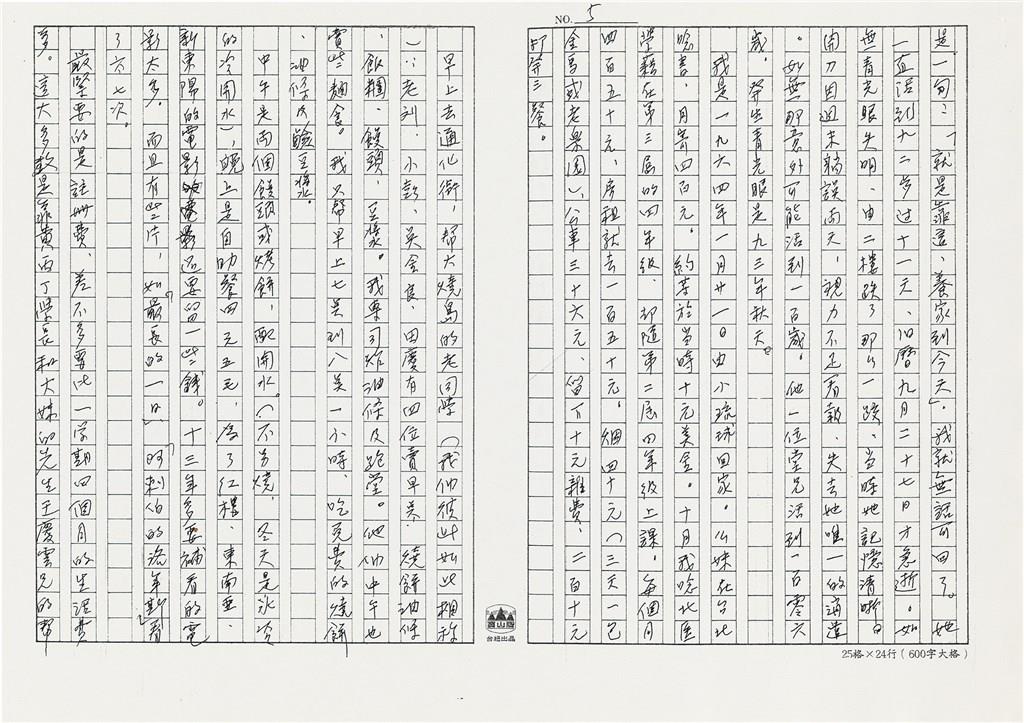 NO. 5
是一句:「就是靠這、養家到今天」。我就無話可回了。她
一直活到九十二岁过十一天、旧曆九月二十七日才急逝。如
無青光眼失明、由二樓跌了那么一跤、当時她記憶清晰、
開刀因週末躭誤兩天、視力不足看報、失去她唯一的消遣
。如無那意外可能活到一百歲。他一位堂兄活到一百零六
歲。發生青光眼是九三年秋天。
我是一九六四年一月廿一日由小琉球回家。么妹在台北
唸書、月薪四百元。約等於当時十元美金。十月我唸北医
學籍在第三屆的四年级、却隨第二屆四年级上課。每個月
四百五十元、房租就去一百五十元。烟四十元(三天一包
金馬或老樂園)、公車三十六元、留下十元雜費、二百十元
打發三餐。
早上去通化街,帮大燒鳥的老同學(我们彼此如此相称
)∴老刘、小彭、吳金良、田慶有四位賣早美、燒餅油條
、飯糰、饅頭、豆漿。我專司炸油條及跑堂。他们中午也
賣些麵食。我只帮早上七美到八美一小時、吃免費的燒餅
、油條及鹼豆漿。
中午是兩個饅頭或烤餅,配開水。(不另燒、冬天是冰冷
的冷開水),晚上是自助餐四元五毛,為了紅樓、東南亚、
新東陽的電影還要留一些錢。十三年多要補看的電
影太多。而且有些片,如「最長的一日」「阿剌伯的洛年斯」看
了六七次。
最緊要的是註冊費、差不多要比一学期四個月的生活費
多。這大多数是靠黄丙丁學長和大妹的先生王慶雲兄的帮
台紐出品
25格×24行(600字大格)